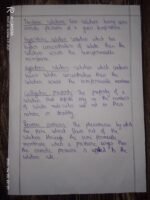 Isotonic solutions: Two solutions having same
osmotic pressure at a given temperature.
Hypertonic solution: solution which has
higher concentration of solute than the
solution across the semipermeable
membrane.
Hypotonic solution: solution which contains
lower solute concentration than the
solution across the semipermeable membrane
Colligative property: The property of a
solution that depends only on the number
of solute molecules and not on their
nature or identity.
Reverse osmosis: The phenomenon by which
the pure solvent flows out of the
solution through the semi permeable
membrane when a pressure larger than
the osmotic pressure is applied to the
solution side